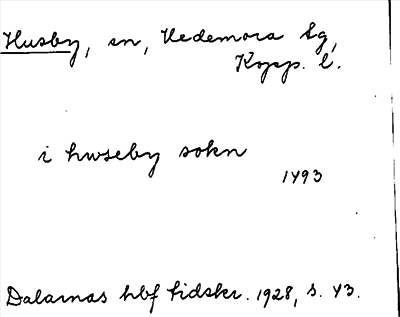 Husby, sn, Hedemora tg,
Kopp. l.
i hwseby sokn
1493
Dalarnas hbf tidskr. 1928, s. 43.